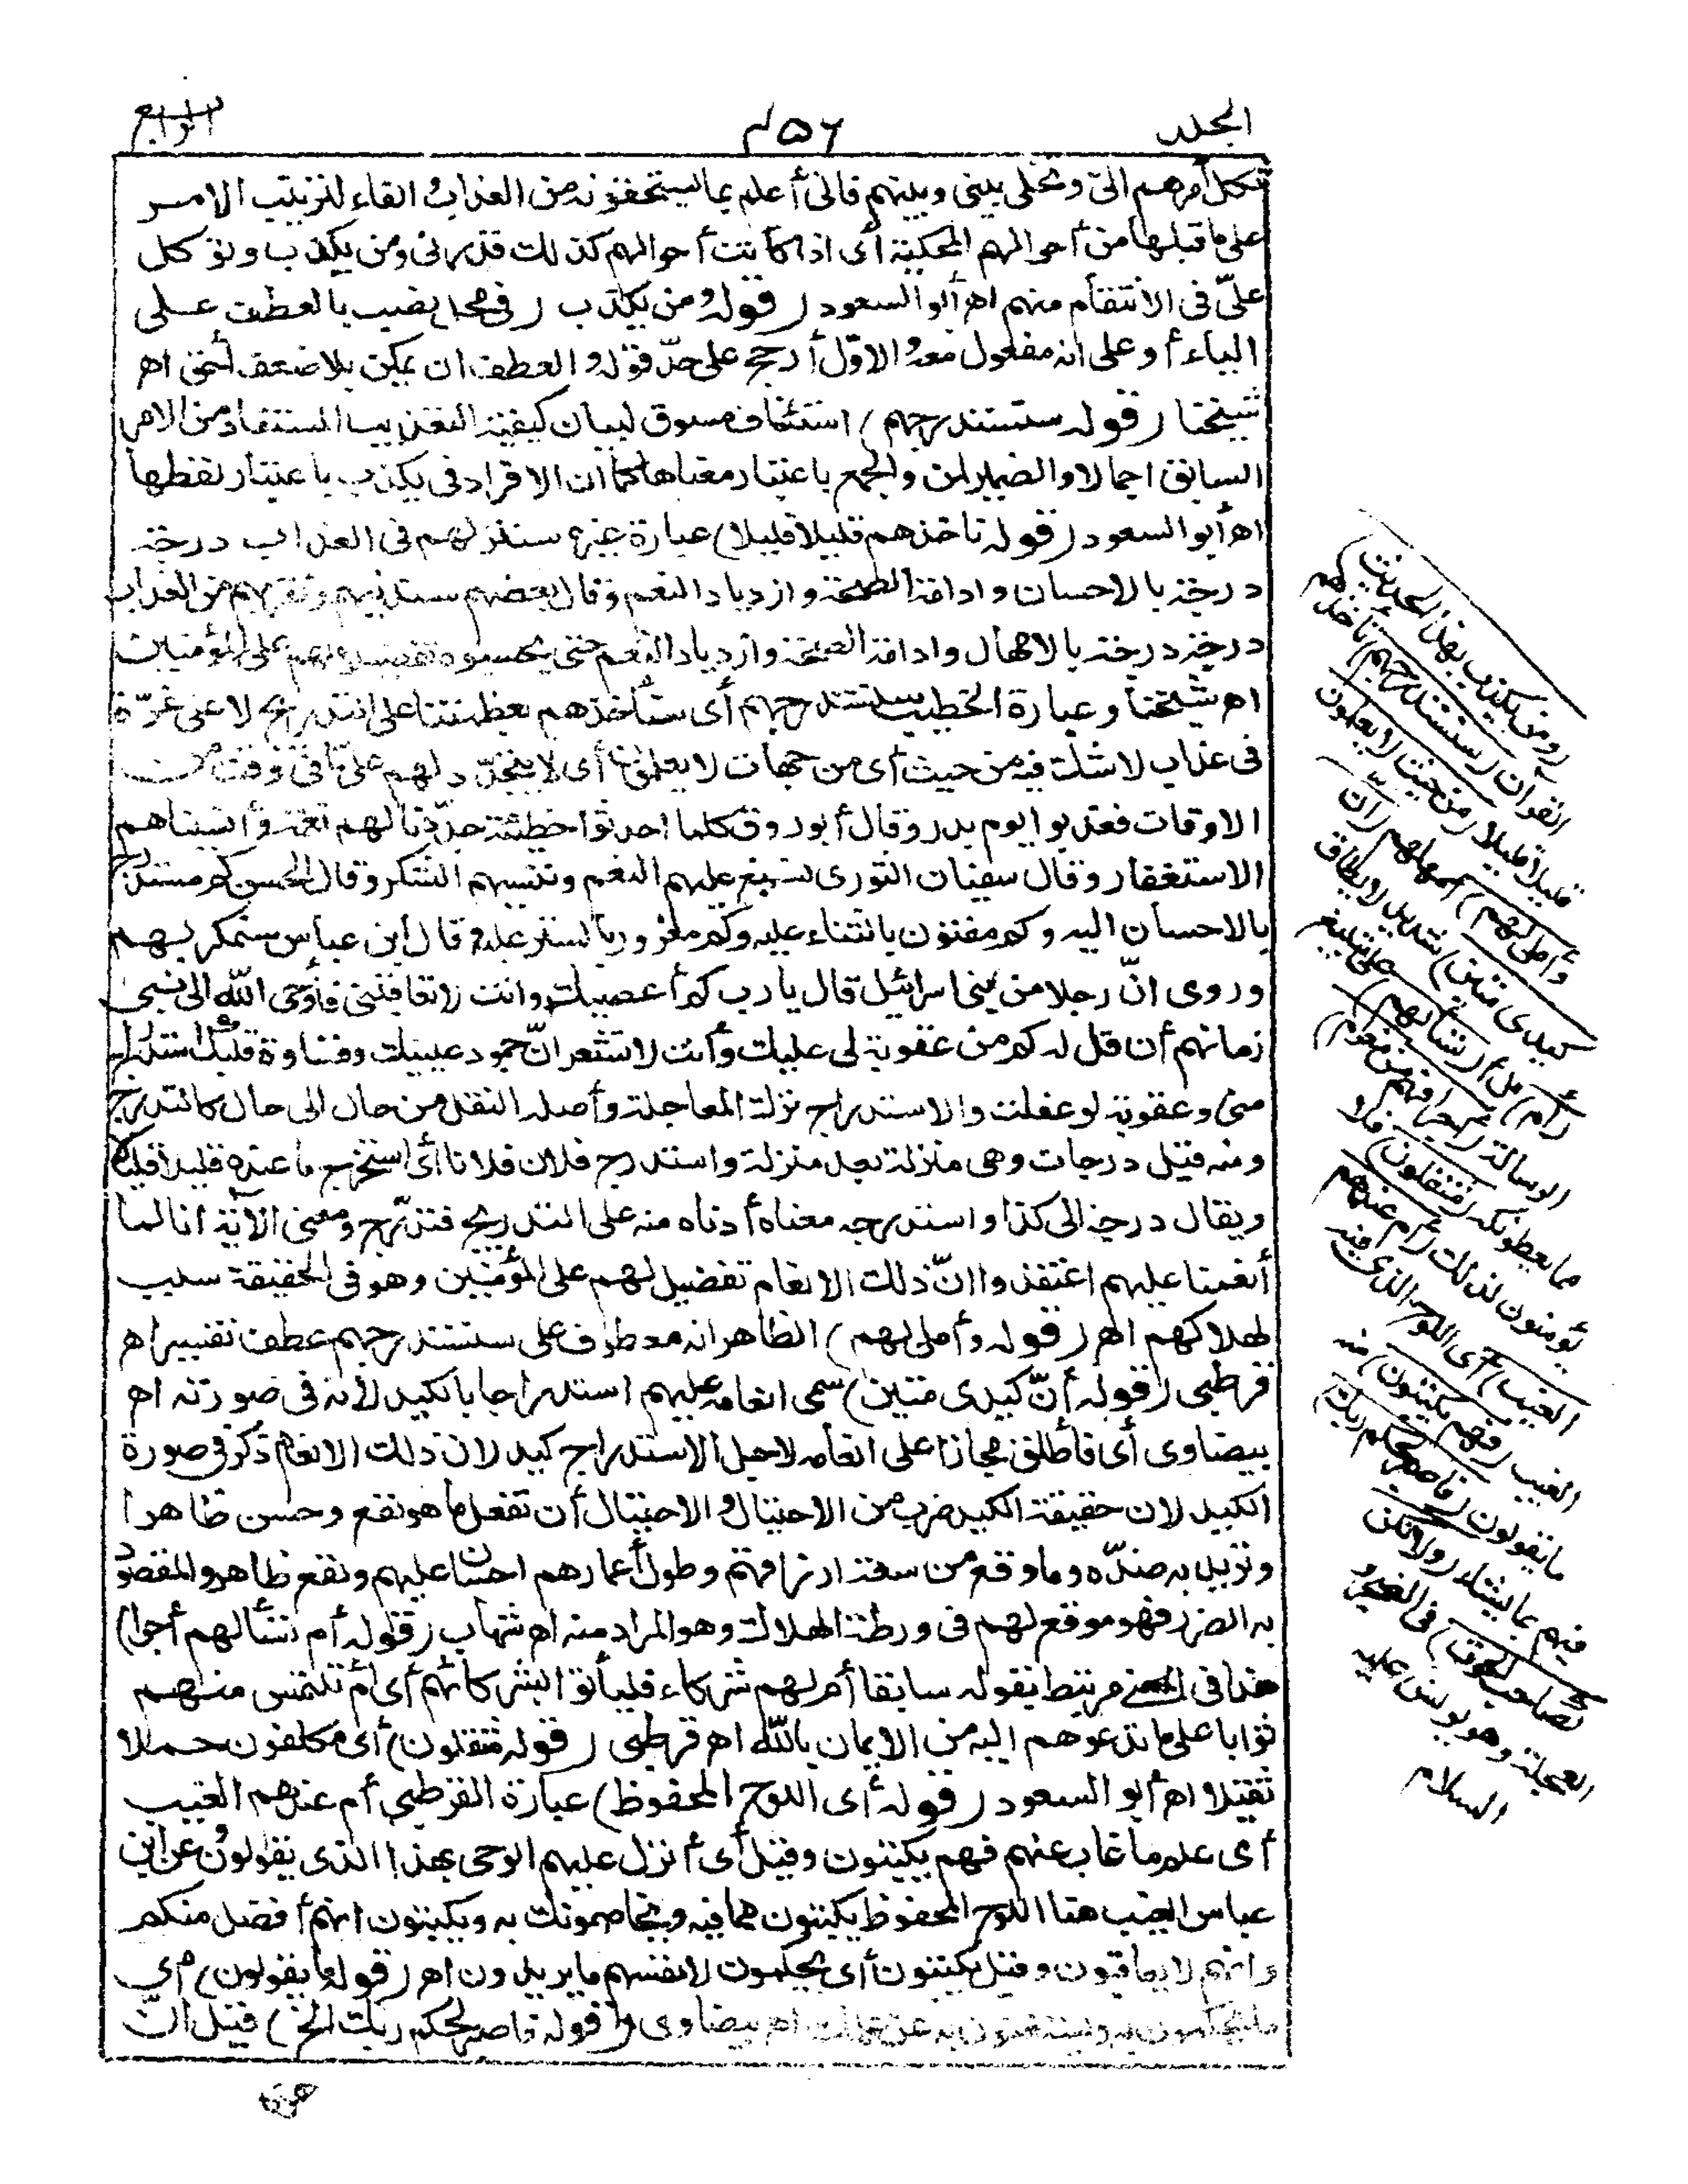 المجلد
٤٥٦
الرابع
تكل أمرهم الىّ وتخلى بينى وبينهم فانى أعلم بما يستحقونه من العذاب والفاء لترتيب الامر
على ما قبلها من أحوالهم المحكية أى اذا كانت أحوالهم كذلك فذرنى ومن يكذب وتوكل
علىّ فى الانتقام منهم اه أبو السعود (قوله ومن يكذب) فى محل نصب بالعطف على
الياء أو على انه مفعول معه والاوّل أرجح على حدّ قوله والعطف ان يمكن بلا ضعف أحق اه
شيخنا (قوله سنستدرجهم) استئناف مسوق لبيان كيفية التعذيب المستفاد من الامر
السابق اجمالا والضمير لمن والجمع باعتبار معناها كما ان الافراد فى يكذب باعتبار لفظها
اه أبو السعود (قوله نأخذهم قليلا قليلا) عبارة غيره سننزلهم فى العذاب درجة
درجة بالاحسان وادامة الصحة وازدياد النعم وقال بعضهم سندنيهم ونقربهم من العذاب
درجة درجة بالامهال وادامة الصحة وازدياد النعم حتى يحسبوه تفضيلا لهم على المؤمنين
اه شيخنا وعبارة الخطيب سنستدرجهم أى سنأخذهم بعظمتنا على التدريج لا على غرّة
فى عذاب لاشك فيه من حيث أى من جهات لا يعلمون أى لا يتجدّد لهم علم مّا فى وقت من
الاوقات فعذبوا يوم بدر وقال أبو روق كلما احدثوا خطيئة جدّدنا لهم نعمة وأنسيناهم
الاستغفار وقال سفيان الثورى نسبغ عليهم النعم وننسيهم الشكر وقال الحسن كم مستدرج
بالاحسان اليه وكم مفتون بالثناء عليه وكم مغرور بالستر عليه وقال ابن عباس سنمكر بهم
وروى انّ رجلا من بنى اسرائيل قال يا رب كم أعصيك وانت لا تعاقبنى فأوحى الله الى نبى
زمانهم أن قل له كم من عقوبة لى عليك وأنت لا تشعر انّ جمود عينيك وقساوة قلبك استدراج
منى وعقوبة لو عقلت والاستدراج ترك المعاجلة وأصله النقل من حال الى حال كالتدرج
ومنه قيل درجات وهى منزلة بعد منزلة واستدرج فلان فلانا أى استخرج ما عنده قليلا قليلا
ويقال درجه الى كذا واستدرجه معناه أدناه منه على التدريج فتدرّج ومعنى الآية انا لما
أنعمنا عليهم اعتقدوا انّ ذلك الانعام تفضيل لهم على المؤمنين وهو فى الحقيقة سبب
لهلاكهم اه (قوله وأملى لهم) الظاهر انه معطوف على سنستدرجهم عطف تفسير اه
قرطبى (قوله أنّ كيدى متين) سمى انعامه عليهم استدراجا بالكيد لانه فى صورته اه
بيضاوى أى فأطلق مجازا على انعامه لاجل الاستدراج كيد لان ذلك الانعام ذكر فى صورة
الكيد لان حقيقة الكيد ضرب من الاحتيال والاحتيال أن تفعل ما هو نفع وحسن ظاهرا
وتريد به ضدّه وما وقع من سعة ارزاقهم وطول أعمارهم احسان عليهم ونفع ظاهر والمقصود
به الضرر فهو موقع لهم فى ورطة الهلاك وهو المراد منه اه شهاب (قوله أم تسألهم أجرا)
هذا فى المعنى مرتبط بقوله سابقا أم لهم شركاء فليأتوا بشركائهم أى أم تلتمس منهم
ثوابا على ما تدعوهم اليه من الايمان بالله اه قرطبى (قوله مثقلون) أى مكلفون حملا
ثقيلا اه أبو السعود (قوله أى اللوح المحفوظ) عبارة القرطبى أم عندهم الغيب
أى علم ما غاب عنهم فهم يكتبون وقيل أى أنزل عليهم الوحى بهذا الذى يقولون وعن ابن
عباس الغيب هنا اللوح المحفوظ يكتبون مما فيه ويخاصمونك به ويكتبون انهم أفضل منكم
وانهم لا يعاقبون وقيل يكتبون أى يحكمون لانفسهم ما يريدون اه (قوله ما يقولون) أى
ما يحكمون به ويستغنون به عن علمك اه بيضاوى (قوله فاصبر لحكم ربك الخ) قيل انّ
(ومن يكذب بهذا الحديث)
القرآن (سنستدرجهم) نأخذهم
قليلا قليلا (من حيث لا يعلمون
وأملى لهم) أمهلهم (انّ
كيدى متين) شديد لا يطاق
(أم) بل أ (تسألهم) على تبليغ
الرسالة (أجرا فهم من مغرم)
مما يعطونكه (مثقلون) فلا
يؤمنون لذلك (أم عندهم
الغيب) أى اللوح الذى فيه
الغيب (فهم يكتبون) منه
ما يقولون (فاصبر لحكم ربك)
فيهم بما يشاء (ولا تكن
كصاحب الحوت) فى الضجر و
العجلة وهو يونس عليه
السلام